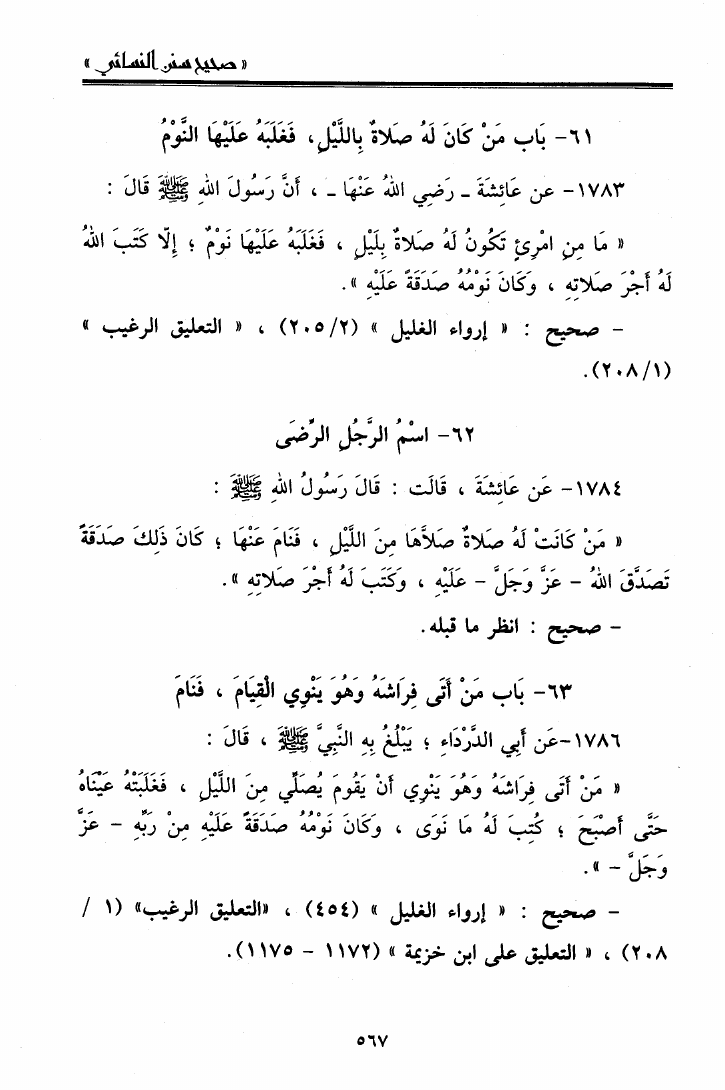 « صحيح سنن النسائي »
٦١- بَاب مَنْ كَانَ لَهُ صَلاةٌ بِاللَّيْلِ، فَغَلَبَهُ عَلَيْهَا النَّوْمُ
١٧٨٣- عن عَائِشَةَ ـ رَضِي اللهُ عَنْهَا ـ ، أَنَّ رَسُولَ اللهِ ﷺ قَالَ :
« مَا مِنِ امْرِئٍ تَكُونُ لَهُ صَلاةٌ بِلَيْلٍ ، فَغَلَبَهُ عَلَيْهَا نَوْمٌ ؛ إِلّا كَتَبَ اللهُ
لَهُ أَجْرَ صَلاتِهِ ، وَكَانَ نَوْمُهُ صَدَقَةً عَلَيْهِ ».
– صحيح : « إرواء الغليل » (٢/ ٢٠٥) ، « التعليق الرغيب »
(١/ ٢٠٨).
٦٢- اسْمُ الرَّجُلِ الرِّضَى
١٧٨٤- عَن عَائِشَةَ ، قَالَت : قَالَ رَسُولُ اللهِ ﷺ :
« مَنْ كَانَتْ لَهُ صَلاةٌ صَلاَّهَا مِنَ اللَّيْلِ ، فَنَامَ عَنْهَا ؛ كَانَ ذَلِكَ صَدَقَةً
تَصَدَّقَ اللهُ – عَزَّ وَجَلَّ – عَلَيْهِ ، وَكَتَبَ لَهُ أَجْرَ صَلاتِهِ ».
– صحيح : انظر ما قبله.
٦٣- بَاب مَنْ أَتَى فِرَاشَهُ وَهُوَ يَنْوِي الْقِيَامَ ، فَنَامَ
١٧٨٦-عَن أَبِي الدَّرْدَاءِ ؛ يَبْلُغُ بِهِ النَّبِيَّ ﷺ ، قَالَ :
« مَنْ أَتَى فِرَاشَهُ وَهُوَ يَنْوِي أَنْ يَقُومَ يُصَلِّي مِنَ اللَّيْلِ ، فَغَلَبَتْهُ عَيْنَاهُ
حَتَّى أَصْبَحَ ؛ كُتِبَ لَهُ مَا نَوَى ، وَكَانَ نَوْمُهُ صَدَقَةً عَلَيْهِ مِنْ رَبِّهِ – عَزَّ
وَجَلَّ – ».
– صحيح : « إرواء الغليل » (٤٥٤) ، «التعليق الرغيب» (١ /
٢٠٨) ، « التعليق على ابن خزيمة » (١١٧٢ – ١١٧٥).
٥٦٧